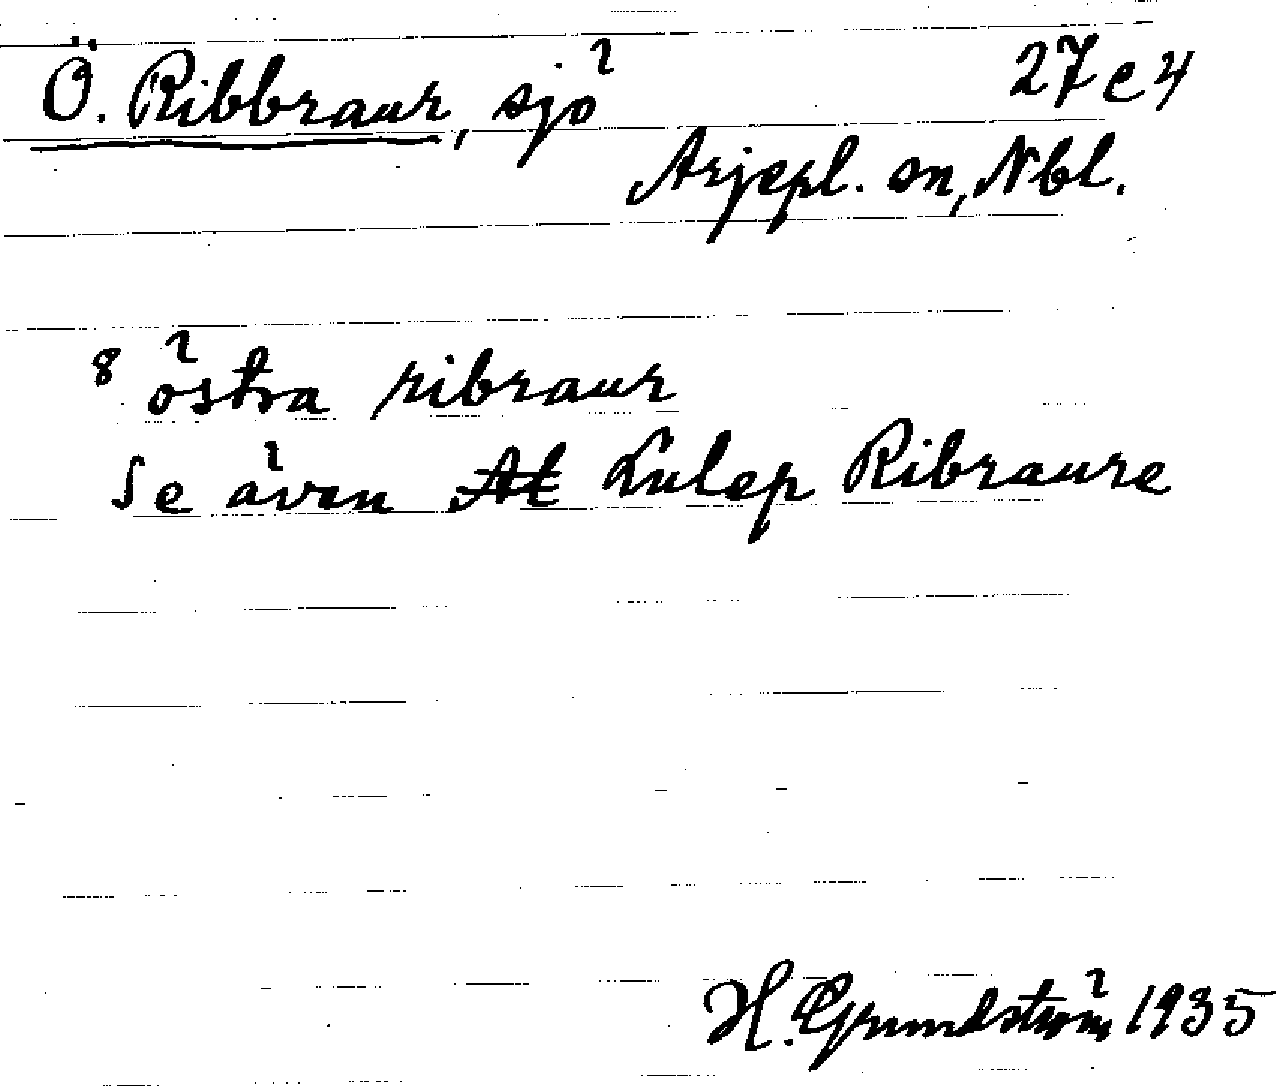 Ö. Ribbraur, sjö 27 e 4
Arjepl. sn, Nbl.
8 östra ribraur
Se även A̶t̶ Lulep Ribraure
H. Grundström 1935